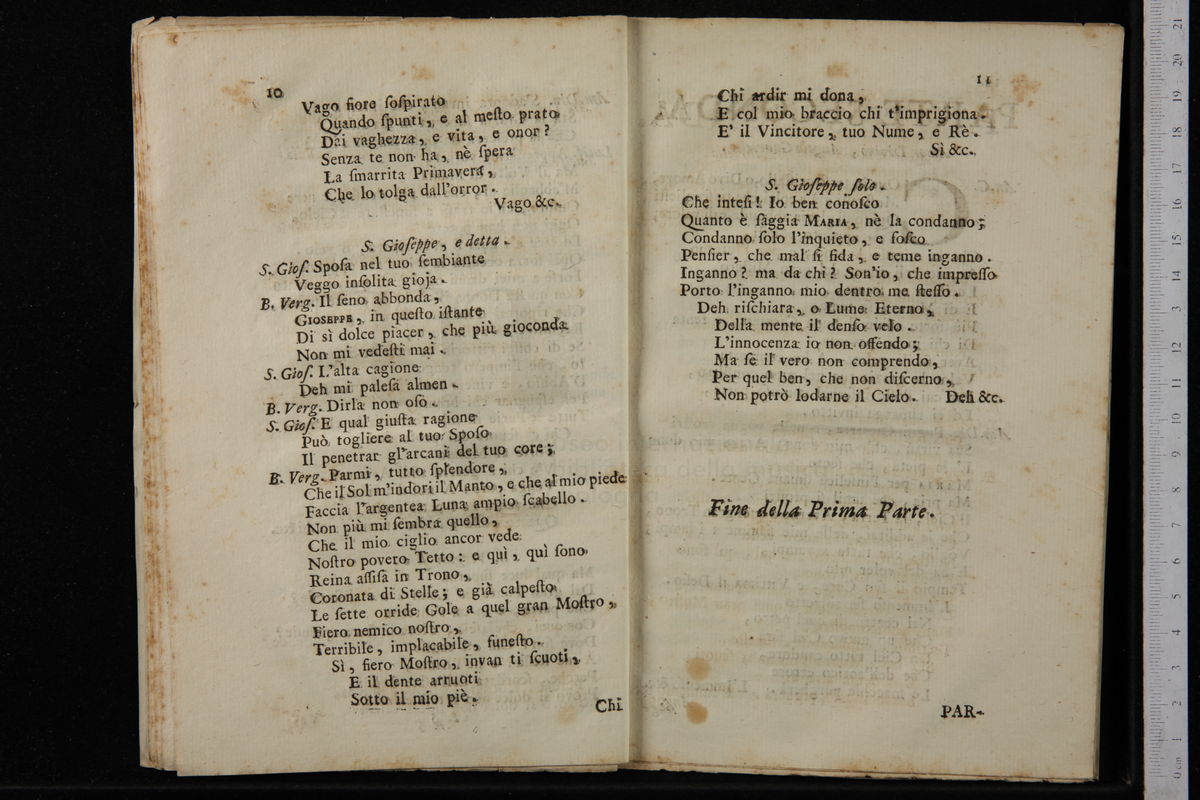 10
Vago fiore ſoſpirato
Quando ſpunti, e al meſto prato
Dai vaghezza, e vita, e onor?
Senza te non ha, nè ſpera
La ſmarrita Primavera,
Che lo tolga dall'orror.
Vago &c.
S. Gioſeppe, e detta.
S. Gioſ. Spoſa nel tuo ſembiante
Veggo inſolita gioja.
B. Verg. Il ſeno abbonda,
GIOSEPPE, in queſto iſtante
Di sì dolce piacer, che più gioconda
Non mi vedeſti mai.
S. Gioſ. L'alta cagione
Deh mi paleſa almen.
B. Verg. Dirla non oſo.
S. Gioſ. E qual giuſta ragione
Può togliere al tuo Spoſo
Il penetrar gl'arcani del tuo core;
B. Verg. Parmi, tutto ſplendore,
Che il Sol m'indori il Manto, e che al mio piede
Faccia l'argentea Luna ampio ſcabello.
Non più mi ſembra quello,
Che il mio ciglio ancor vede
Noſtro povero Tetto: e quì, quì ſono
Reina aſſiſa in Trono,
Coronata di Stelle; e già calpeſto
Le ſette orride Gole a quel gran Moſtro,
Fiero nemico noſtro,
Terribile, implacabile, funeſto.
Sì, fiero Moſtro, invan ti ſcuoti,
E il dente arruoti
Sotto il mio piè.
Chi
11
Chi ardir mi dona,
E col mio braccio chi t'imprigiona.
E' il Vincitore, tuo Nume, e Rè.
Sì &c.
S. Gioſeppe ſolo.
Che inteſi! Io ben conoſco
Quanto è ſaggia MARIA, nè la condanno;
Condanno ſolo l'inquieto, e foſco
Penſier, che mal ſi fida, e teme inganno.
Inganno? ma da chi? Son'io, che impreſſo
Porto l'inganno mio dentro me ſteſſo.
Deh riſchiara, o Lume Eterno,
Della mente il denſo velo.
L'innocenza io non offendo;
Ma ſe il vero non comprendo,
Per quel ben, che non diſcerno,
Non potrò lodarne il Cielo. Deh &c.
Fine della Prima Parte.
PAR-